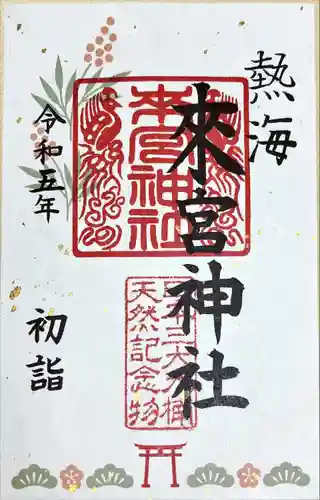 熱海
來宮神社
來宮神社
日本三大樟
天然記念物
令和五年
初詣